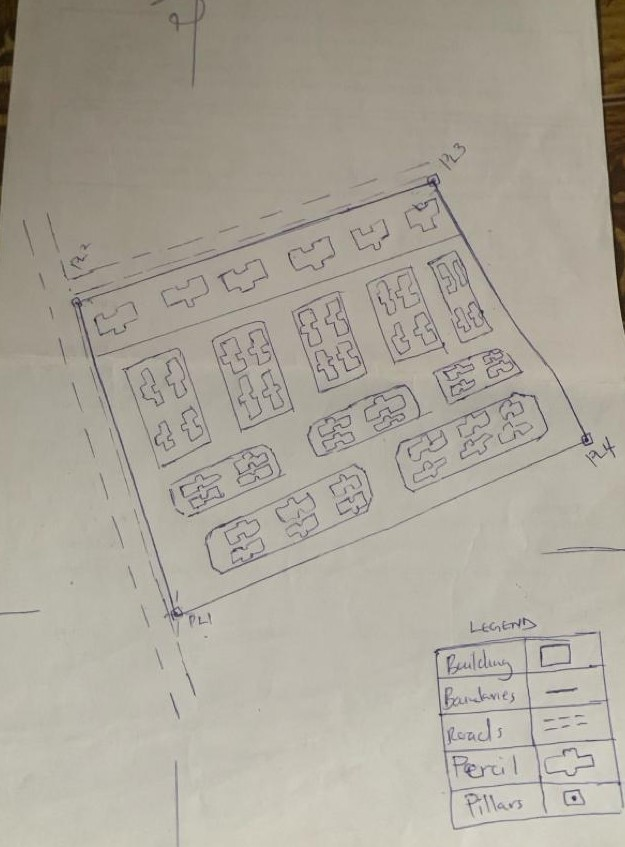 PL3
PL2
PL4
PL1
LEGEND
Building
Boundaries
Roads
Percil
Pillars